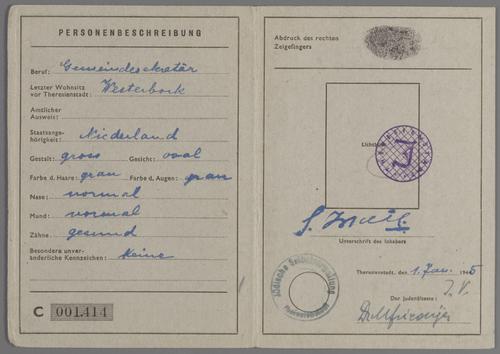 PERSONENBESCHREIBUNG
Beruf: Gemeindesekretär
Letzter Wohnsitz
vor Theresienstadt: Westerbork
Amtlicher
Ausweis:
Staatsange-
hörigkeit: Niederland
Gestalt: gross Gesicht: oval
Farbe d. Haare: grau Farbe d. Augen: grau
Nase: normal
Mund: normal
Zähne: gesund
Besondere unver-
änderliche Kennzeichen: Keine
C 001414
Abdruck des rechten
Zeigefingers
Lichtbild
Unterschrift des Inhabers
Jüdische Selbstverwaltung
Theresienstadt
Theresienstadt, den 1. Jan. 1945
I. V.
Der Judenälteste: